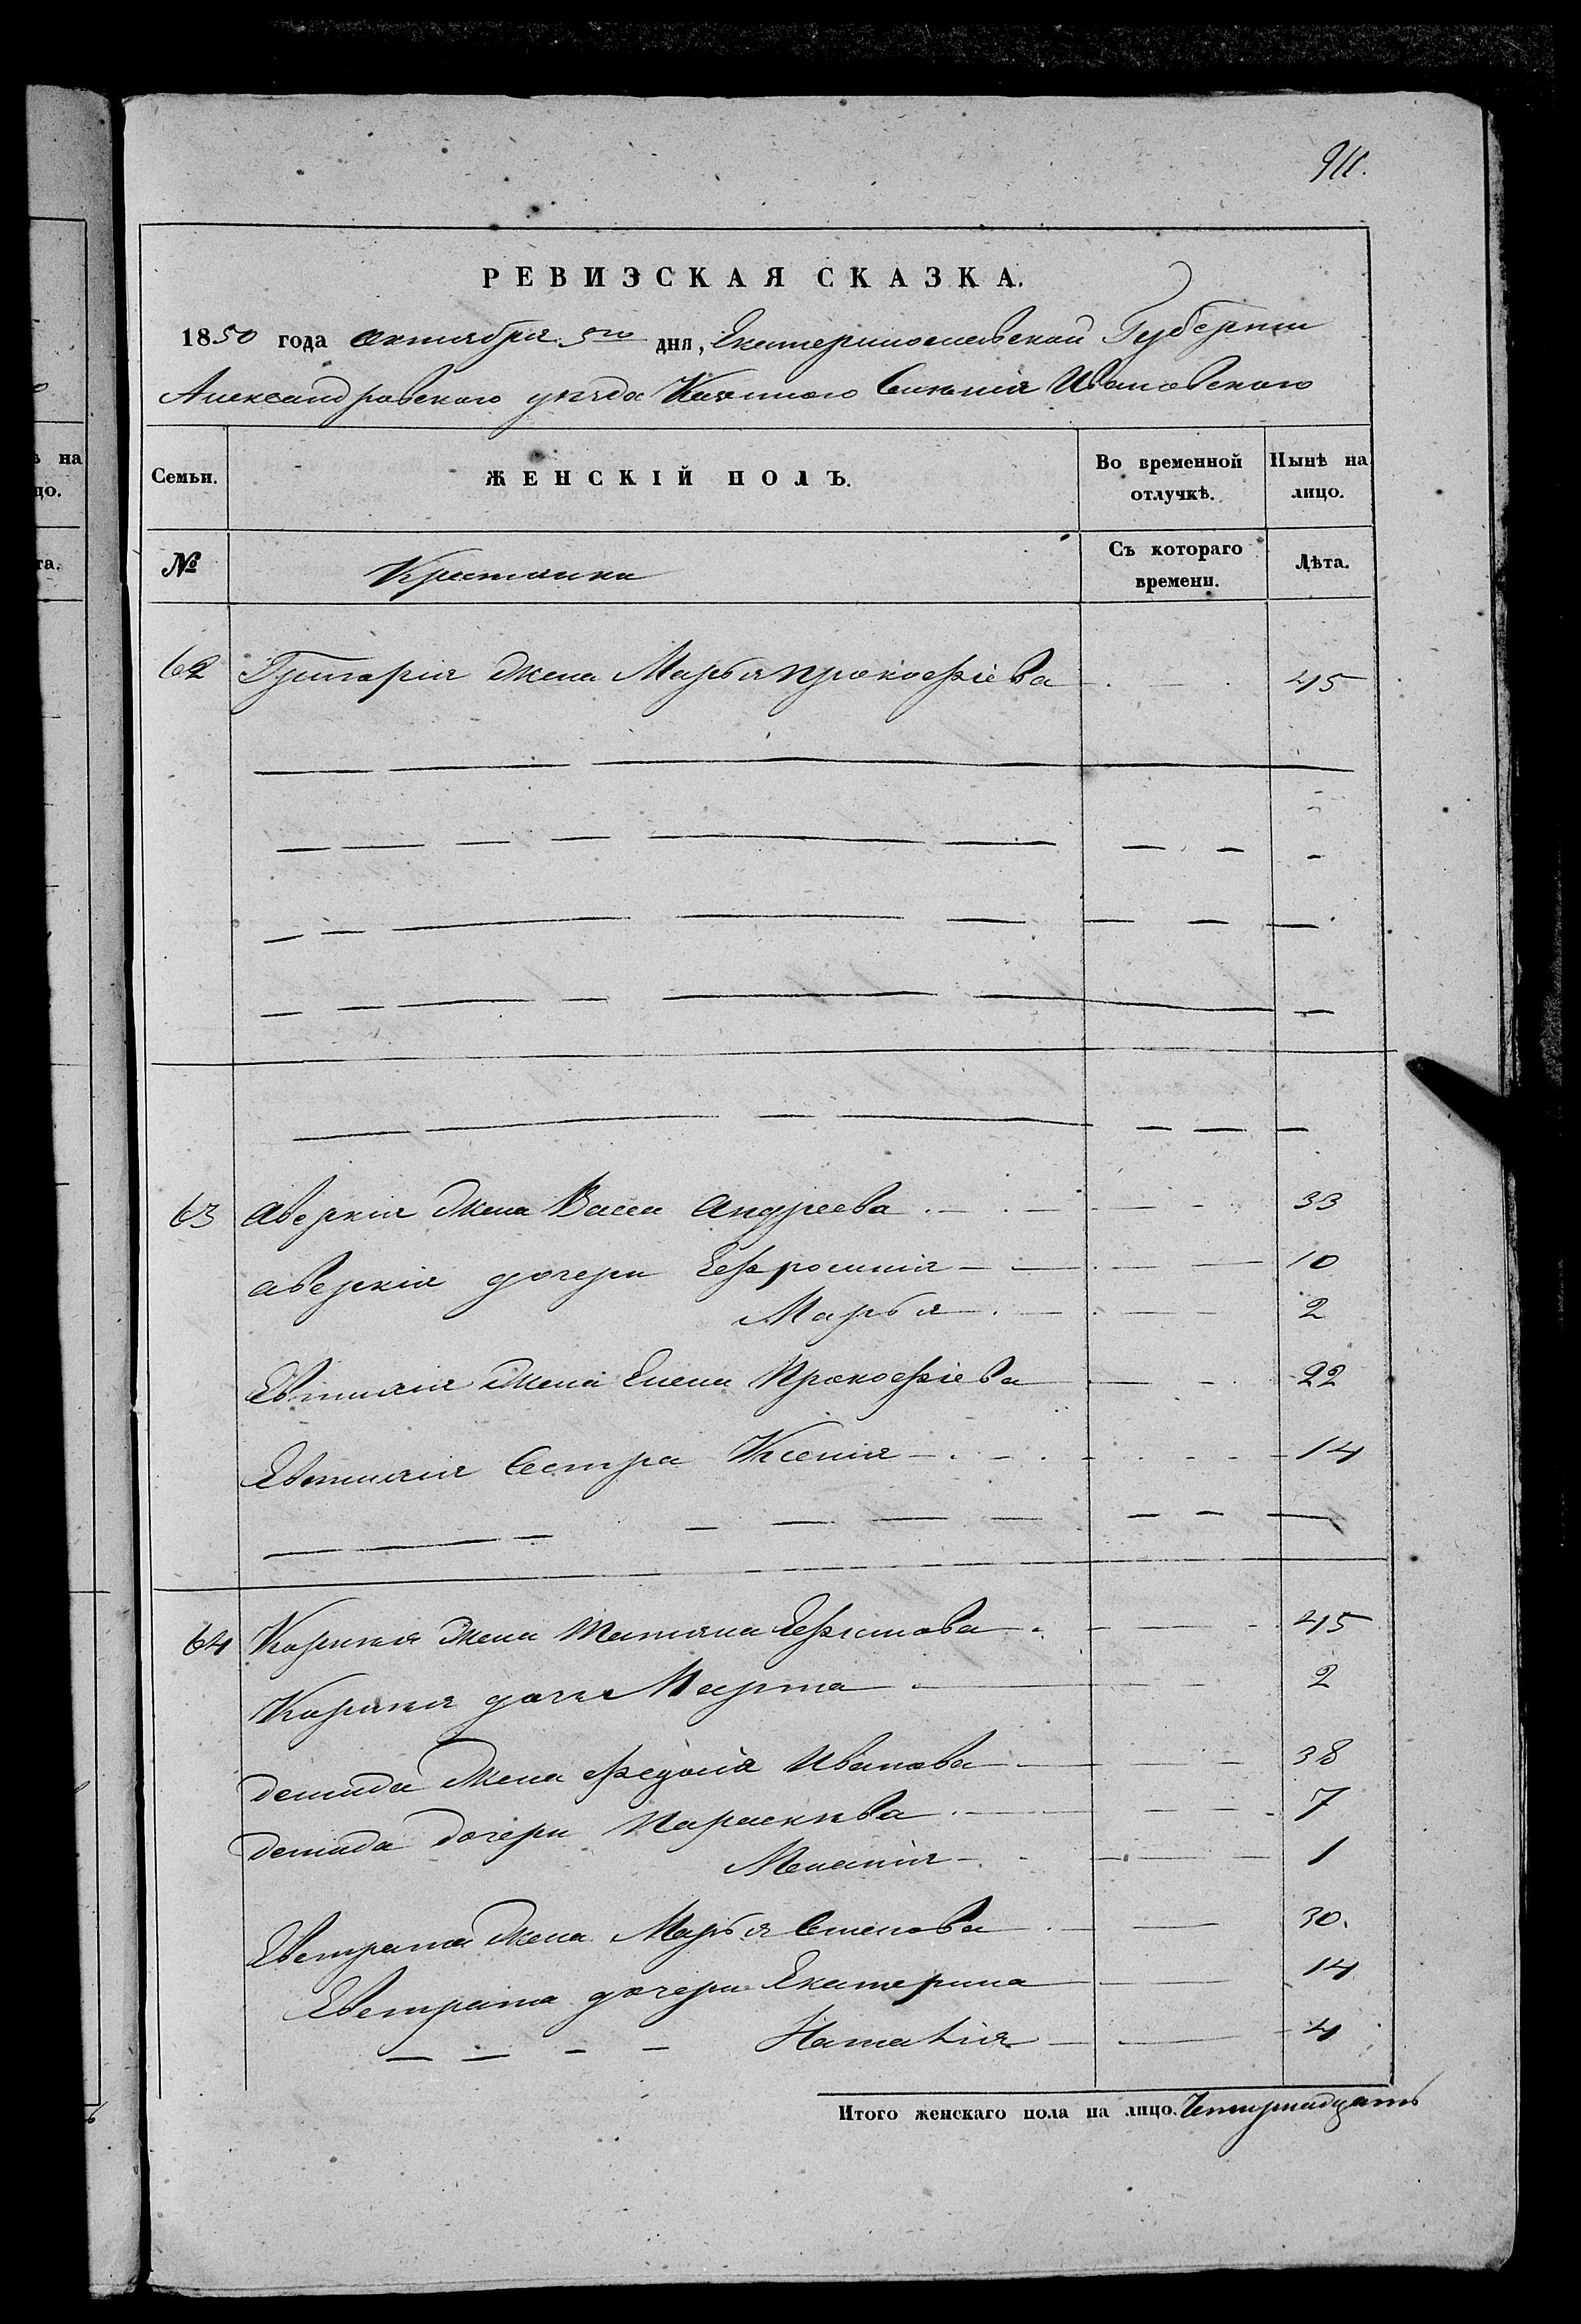 911.
РЕВИЗСКАЯ СКАЗКА.
1850 года октября 5го дня, Екатеринославской Губернии
Александровского уезда Казенного Селения Ивановского
Семьи.
ЖЕНСКІЙ ПОЛЪ.
Во временной отлучкѣ.
Нынѣ на лицо.
№
Крестьянки
Съ котораго времени.
Лѣта.
62 Григория жена Марья Прокофіева 45
63 Аверкия жена Васса Андреева 33
Аверкія дочери Ефросиния 10
Марья 2
Евтихия жена Елена Прокофіева 22
Евтихия Сестра Ксения 14
64 Корнея жена Татьяна Ефимова 45
Корнея дочь Марта 2
Демида жена Федосія Иванова 38
Демида дочери Параскева 7
Мелания 1
Евстрата жена Марья Семенова 30.
Евстрата дочери Екатерина 14
Наталия 4
Итого женскаго пола на лицо. Четырнадцать
на
цо.
та.